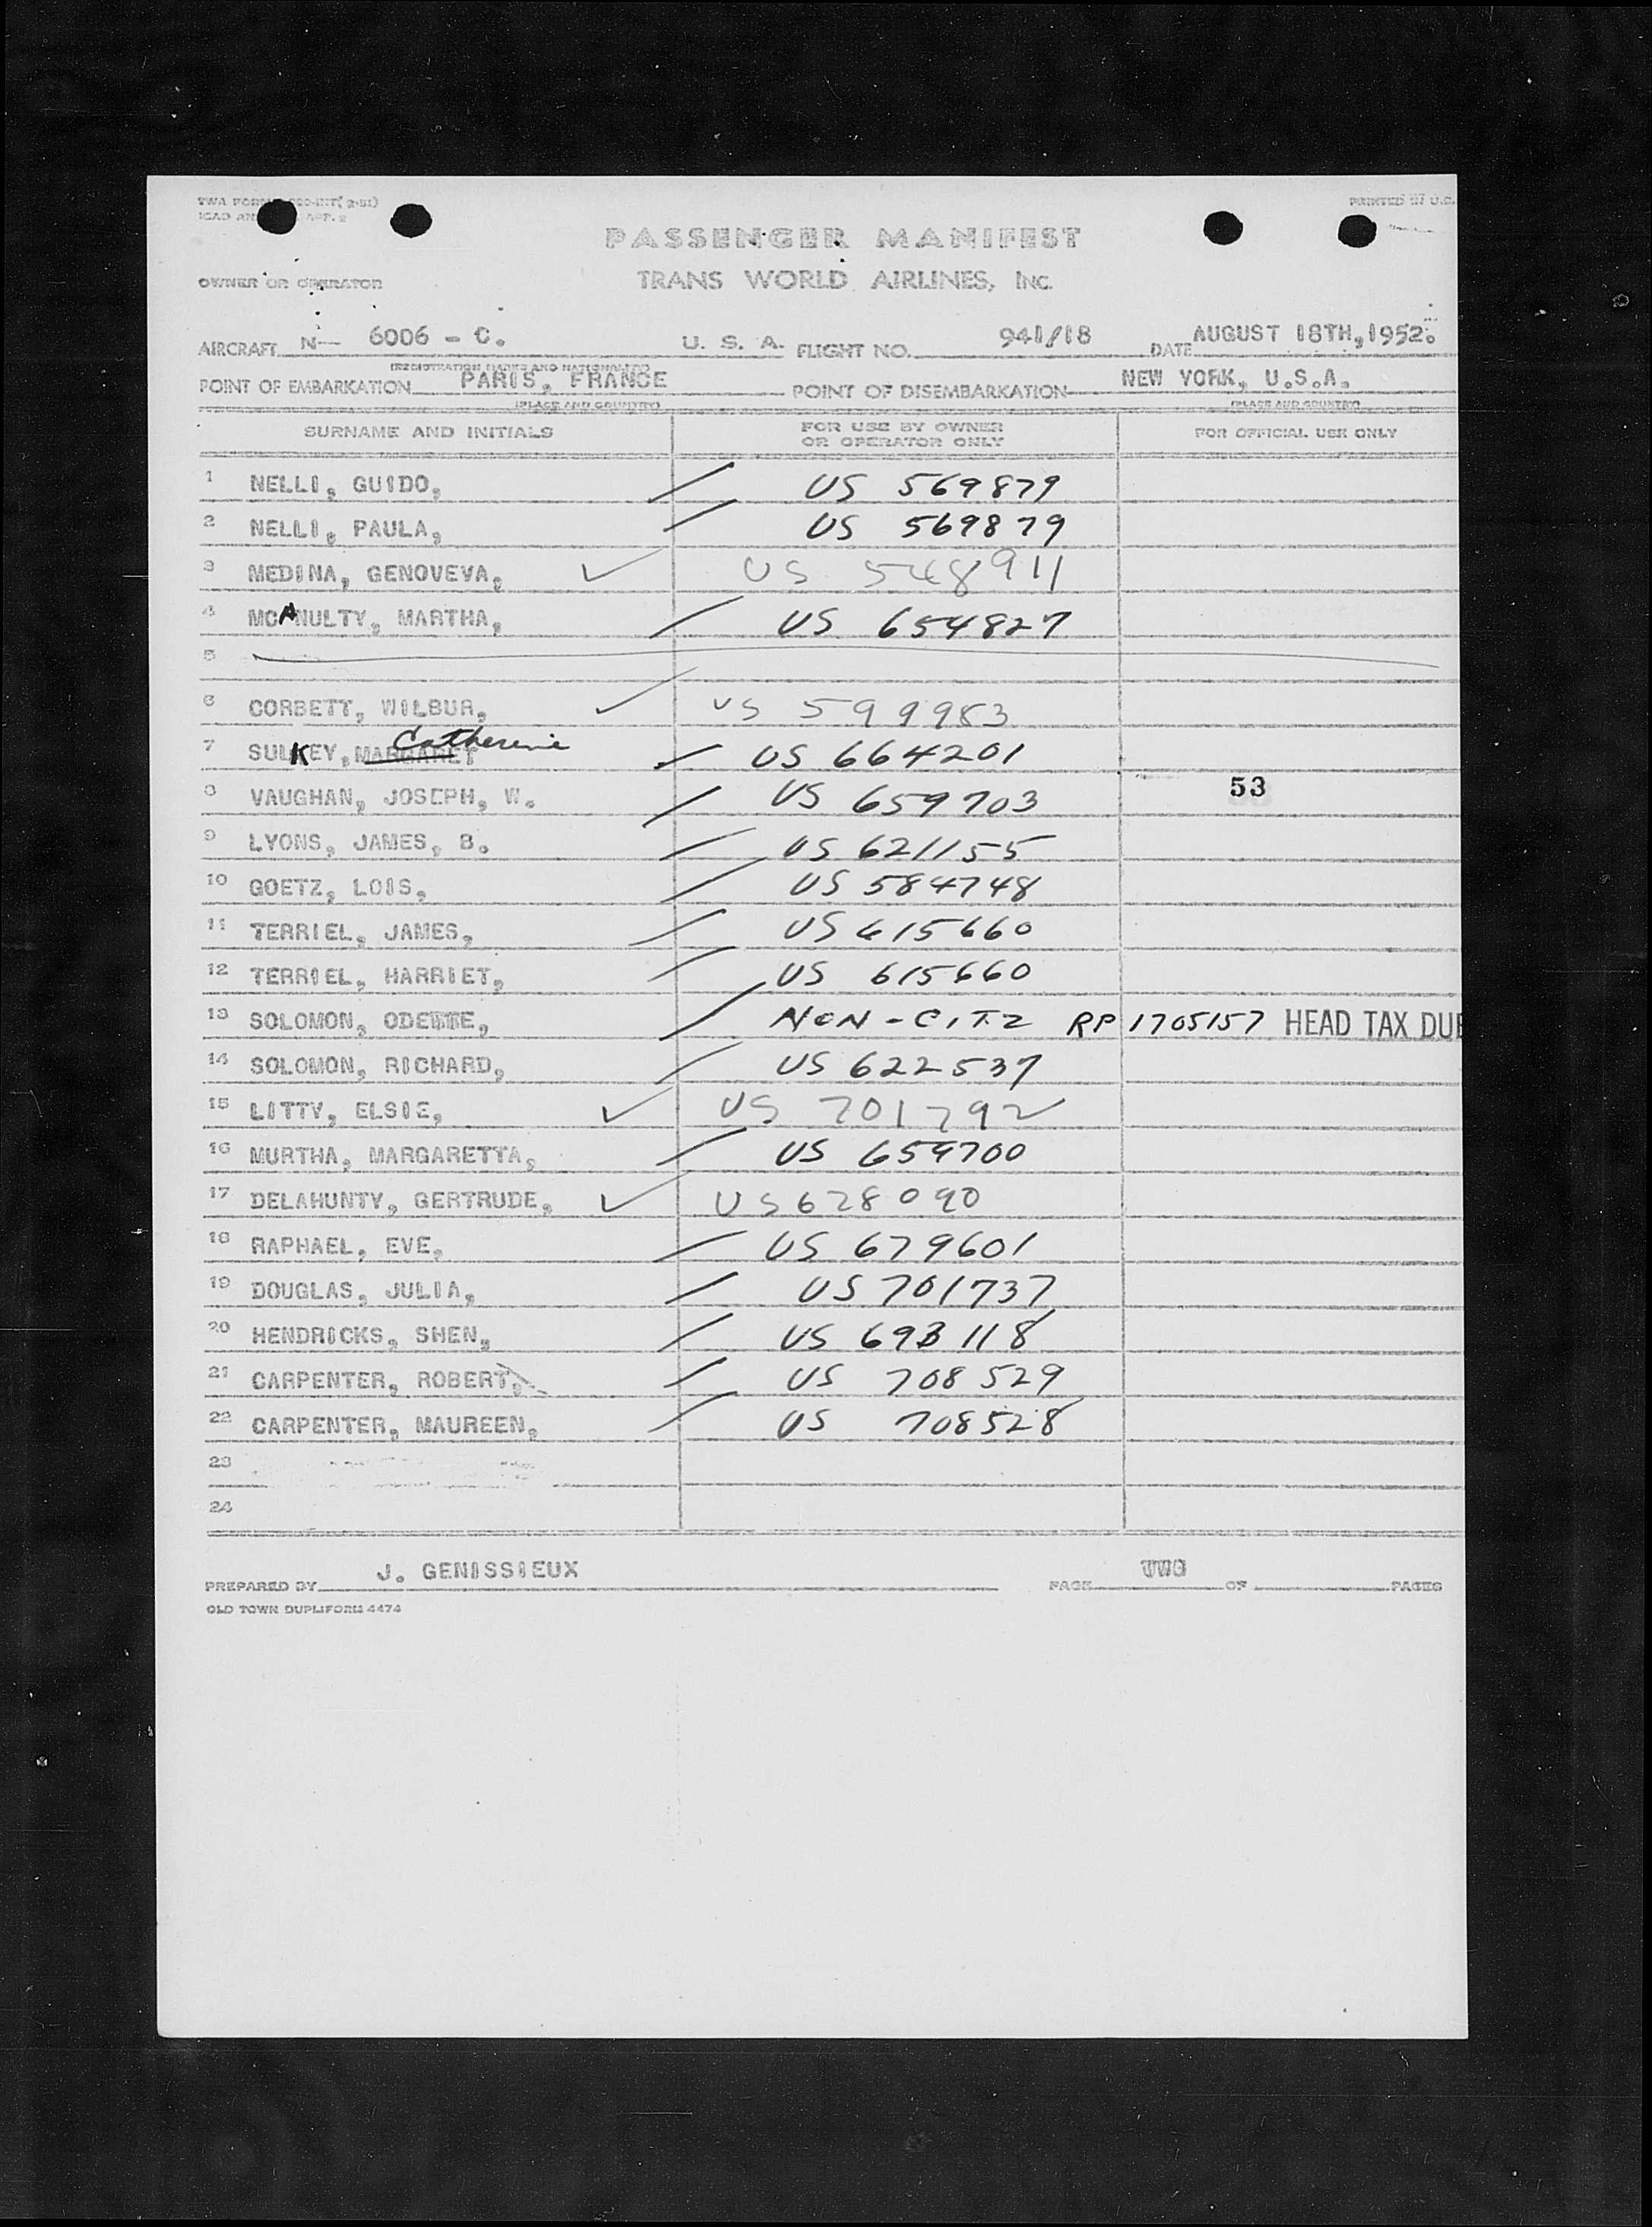 TWA FORM
PRINTED IN U.S.
PASSENGER MANIFEST
OWNER OR OPERATOR
TRANS WORLD AIRLINES, INC.
AIRCRAFT N— 6006 - C. U. S. A. FLIGHT NO. 941/18 DATE AUGUST 18TH, 1952.
(REGISTRATION MARKS AND NATIONALITY)
POINT OF EMBARKATION PARIS, FRANCE POINT OF DISEMBARKATION NEW YORK, U.S.A.
(PLACE AND COUNTRY) (PLACE AND COUNTRY)
SURNAME AND INITIALS FOR USE BY OWNER OR OPERATOR ONLY FOR OFFICIAL USE ONLY
1 NELLI, GUIDO, US 569879
2 NELLI, PAULA, US 569879
3 MEDINA, GENOVEVA, US 548911
4 MCANULTY, MARTHA, US 654827
5
6 CORBETT, WILBUR, US 599983
Catherine
7 SULKEY, MARGARET US 664201
8 VAUGHAN, JOSEPH, W. US 659703 53
9 LYONS, JAMES, B. US 621155
10 GOETZ, LOIS, US 584748
11 TERRIEL, JAMES, US 615660
12 TERRIEL, HARRIET, US 615660
13 SOLOMON, ODETTE, NON-CITZ RP 1705157 HEAD TAX DUE
14 SOLOMON, RICHARD, US 622537
15 LITTY, ELSIE, US 701792
16 MURTHA, MARGARETTA, US 659700
17 DELAHUNTY, GERTRUDE, US 628090
18 RAPHAEL, EVE, US 679601
19 DOUGLAS, JULIA, US 701737
20 HENDRICKS, SHEN, US 693118
21 CARPENTER, ROBERT, US 708529
22 CARPENTER, MAUREEN, US 708528
23
24
PREPARED BY J. GENISSIEUX PAGE TWO OF PAGES
OLD TOWN DUPLIFORM 4474